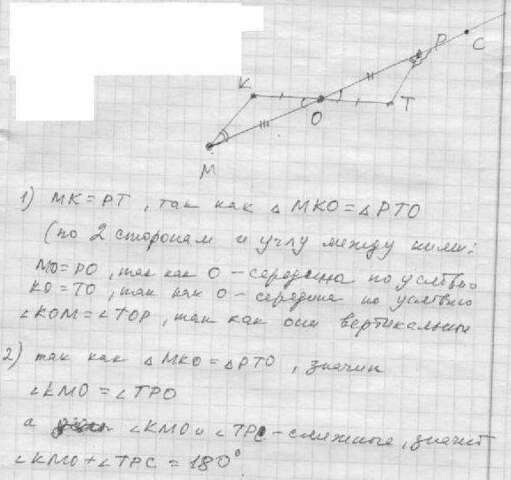 P
C
K
O
T
M
1) MK = PT, так как △ MKO = △ PTO
(по 2 сторонам и углу между ними:
MO = PO, так как O - середина по условию
KO = TO, так как O - середина по условию
∠KOM = ∠TOP, так как они вертикальные
2) так как △ MKO = △ PTO, значит
∠KMO = ∠TPO
а ∠KMO и ∠TPC - смежные, значит
∠KMO + ∠TPC = 180°